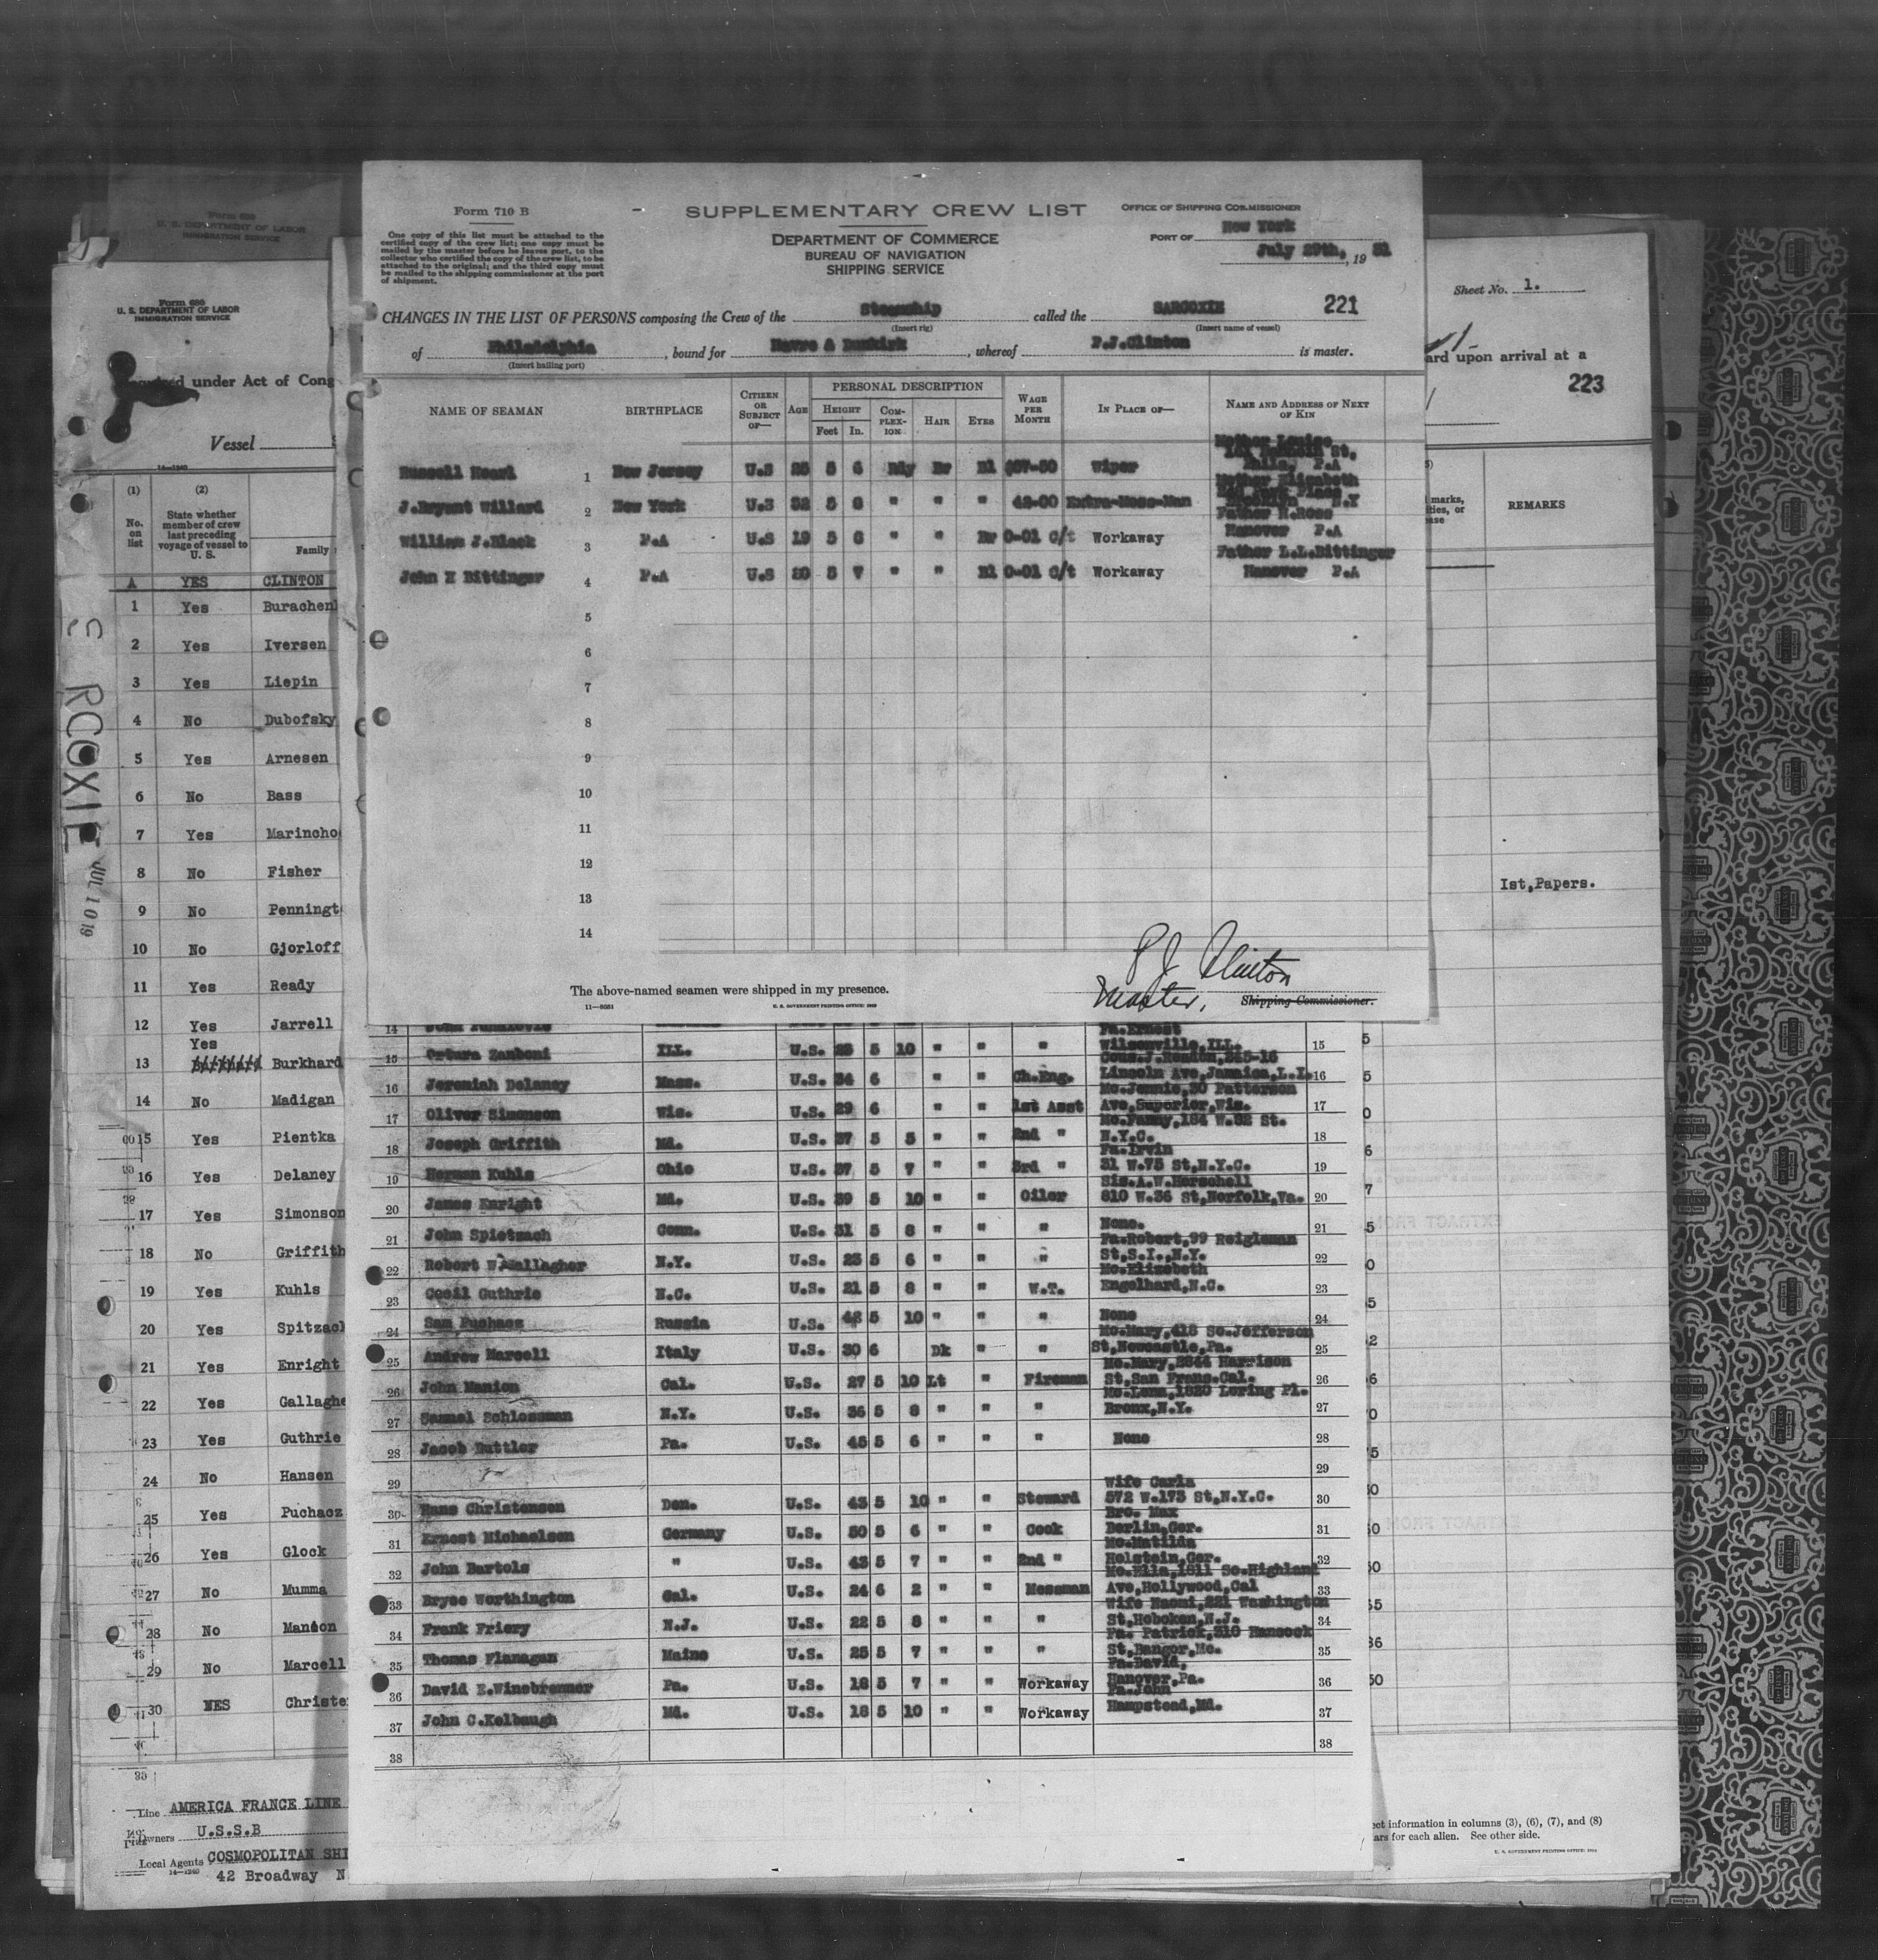 Form 710 B
One copy of this list must be attached to the
certified copy of the crew list; one copy must be
mailed by the master before he leaves port, to the
collector who certified the copy of the crew list, to be
attached to the original; and the third copy must
be mailed to the shipping commissioner at the port
of shipment.
SUPPLEMENTARY CREW LIST
DEPARTMENT OF COMMERCE
BUREAU OF NAVIGATION
SHIPPING SERVICE
OFFICE OF SHIPPING COMMISSIONER
PORT OF New York
July 29th, 19 31
CHANGES IN THE LIST OF PERSONS composing the Crew of the Steamship called the SARCOXIE 221
(Insert rig) (Insert name of vessel)
of Philadelphia, bound for Havre & Dunkirk, whereof P.J.Clinton is master.
(Insert hailing port)
NAME OF SEAMAN BIRTHPLACE CITIZEN OR SUBJECT OF— AGE PERSONAL DESCRIPTION HEIGHT Feet In. COMPLEXION HAIR EYES WAGE PER MONTH IN PLACE OF— NAME AND ADDRESS OF NEXT OF KIN
Mother Louise
1 New Jersey U.S 25 5 6 Rdy Br Bl Wiper Phila, P.A
Mother Elizabeth
J.Bryant Willard 2 New York U.S 32 5 " " " 42-00 Extra-Mess-Man N.Y
Father H.Ross
William J.Black 3 P.A U.S 19 5 " " Br 0-01 c/t Workaway Hanover P.A
Father L.L.Bittinger
John H Bittinger 4 P.A U.S 20 5 7 " " Bl 0-01 c/t Workaway Hanover P.A
5
6
7
8
9
10
11
12
13
14
P J Clinton
Master,
The above-named seamen were shipped in my presence. Shipping Commissioner.
11—8651 U. S. GOVERNMENT PRINTING OFFICE
14 Fa.Ernest
15 Zanboni ILL. U.S. 5 10 " " Wilsonville,ILL. 15
16 Jeremiah Delaney Mass. U.S. 34 6 " " Ch.Eng. Lincoln Ave,Jamaica,L.I. 16
Mo.Jennie,30 Patterson
17 Oliver Simonson Wis. U.S. 29 6 " " 1st Asst Ave,Superior,Wis. 17
Mo.Fanny,184 W.82 St.
18 Joseph Griffith Md. U.S. 37 5 5 " " 2nd " N.Y.C. 18
Fa.Irvin
19 Herman Kuhls Ohio U.S. 37 5 7 " " 3rd " 31 W.75 St,N.Y.C. 19
Sis.A.W.Herschell
20 James Enright Md. U.S. 39 5 10 " " Oiler 810 W.36 St,Norfolk,Va. 20
21 John Spietzach Conn. U.S. 31 5 8 " " " None. 21
Fa.Robert,99 Reigleman
22 Robert W.Gallagher N.Y. U.S. 23 5 6 " " " St,S.I.,N.Y. 22
Mo.Elizabeth
23 Cecil Guthrie N.C. U.S. 21 5 8 " " W.T. Engelhard,N.C. 23
24 Sam Puchacz Russia U.S. 42 5 10 " " " None 24
Mo.Mary,418 So.Jefferson
25 Andrew Marcell Italy U.S. 30 6 Dk " " St,Newcastle,Pa. 25
Mo.Mary,2844 Harrison
26 John Manion Cal. U.S. 27 5 10 Lt " Fireman St,San Frans.Cal. 26
Mo.Lena,1820 Loring Pl.
27 Samuel Schlossman N.Y. U.S. 36 5 8 " " " Bronx,N.Y. 27
28 Jacob Buttler Pa. U.S. 45 5 6 " " " None 28
29 29
Wife Carla
30 Hans Christensen Den. U.S. 43 5 10 " " Steward 572 W.173 St,N.Y.C. 30
Bro. Max
31 Ernest Michaelsen Germany U.S. 50 5 6 " " Cook Berlin,Ger. 31
Mo.Matilda
32 John Bartols " U.S. 43 5 7 " " 2nd " Holstein,Ger. 32
Mo.Ella,1811 So.Highland
33 Bryse Worthington Cal. U.S. 24 6 2 " " Messman Ave,Hollywood,Cal 33
Wife Naomi,221 Washington
34 Frank Friery N.J. U.S. 22 5 8 " " " St,Hoboken,N.J. 34
Fa. Patrick,310 Hancock
35 Thomas Flanagan Maine U.S. 25 5 7 " " " St,Bangor,Me. 35
Fa.David,
36 David E.Winebrenner Pa. U.S. 18 5 7 " " Workaway Hanover,Pa. 36
Fa.John
37 John C.Kelbaugh Md. U.S. 18 5 10 " " Workaway Hampstead,Md. 37
38 38
Form 680
U. S. DEPARTMENT OF LABOR
IMMIGRATION SERVICE
Form 680
U. S. DEPARTMENT OF LABOR
IMMIGRATION SERVICE
under Act of Cong
Vessel
14—1240
(1) (2)
No. on list State whether member of crew last preceding voyage of vessel to U. S. Family
A YES CLINTON
1 Yes Burachen
2 Yes Iversen
3 Yes Liepin
4 No Dubofsky
5 Yes Arnesen
6 No Bass
7 Yes Marincho
8 No Fisher
9 No Penningt
10 No Gjorloff
11 Yes Ready
12 Yes Jarrell
Yes
13 Burkhard
14 No Madigan
15 Yes Pientka
16 Yes Delaney
17 Yes Simonson
18 No Griffith
19 Yes Kuhls
20 Yes Spitzach
21 Yes Enright
22 Yes Gallaghe
23 Yes Guthrie
24 No Hansen
25 Yes Puchacz
26 Yes Glock
27 No Mumma
28 No Manion
29 No Marcell
30 YES Christe
Line AMERICA FRANCE LINE
Owners U.S.S.B
Local Agents COSMOPOLITAN SHI
14—1240
42 Broadway N
RCOXIE
JUL 10 19
Sheet No. 1.
ard upon arrival at a
223
marks,
ties, or
ase
REMARKS
Ist,Papers.
ect information in columns (3), (6), (7), and (8)
ars for each alien. See other side.
U. S. GOVERNMENT PRINTING OFFICE